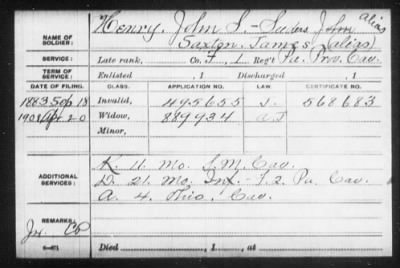 Henry, John S. - Saxton John alias
NAME OF SOLDIER: Saxton, James (alias)
SERVICE: Late rank, Co. F, L Reg't Pa. Prov. Cav.
TERM OF SERVICE: Enlisted , 1 Discharged , 1
DATE OF FILING. CLASS. APPLICATION NO. LAW. CERTIFICATE NO.
1883 Sep 13 Invalid, 495655 568683
Apr 20 Widow, 889934
Minor,
ADDITIONAL SERVICES: K. 11. Mo. S.M. Cav.
D. 21. Mo. Inf. - 2. Pa. Cav.
A. 4. Ohio Cav.
REMARKS:
Died , 1 , at